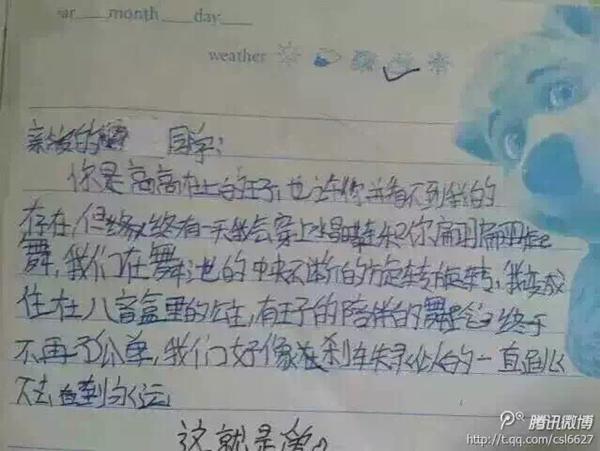 ar month day
weather
亲爱的 同学:
你是高高在上的王子,也许你并看不到我的
存在,但 终有一天我会穿上水晶鞋和你翩翩起
舞,我们在舞池的中央不停的旋转旋转,我变成
住在八音盒里的公主,有王子的陪伴的舞 终于
不再孤单,我们好像 刹车失灵似的一直跳
下去 到永远
这就是爱。
腾讯微博
http://t.qq.com/csl6627